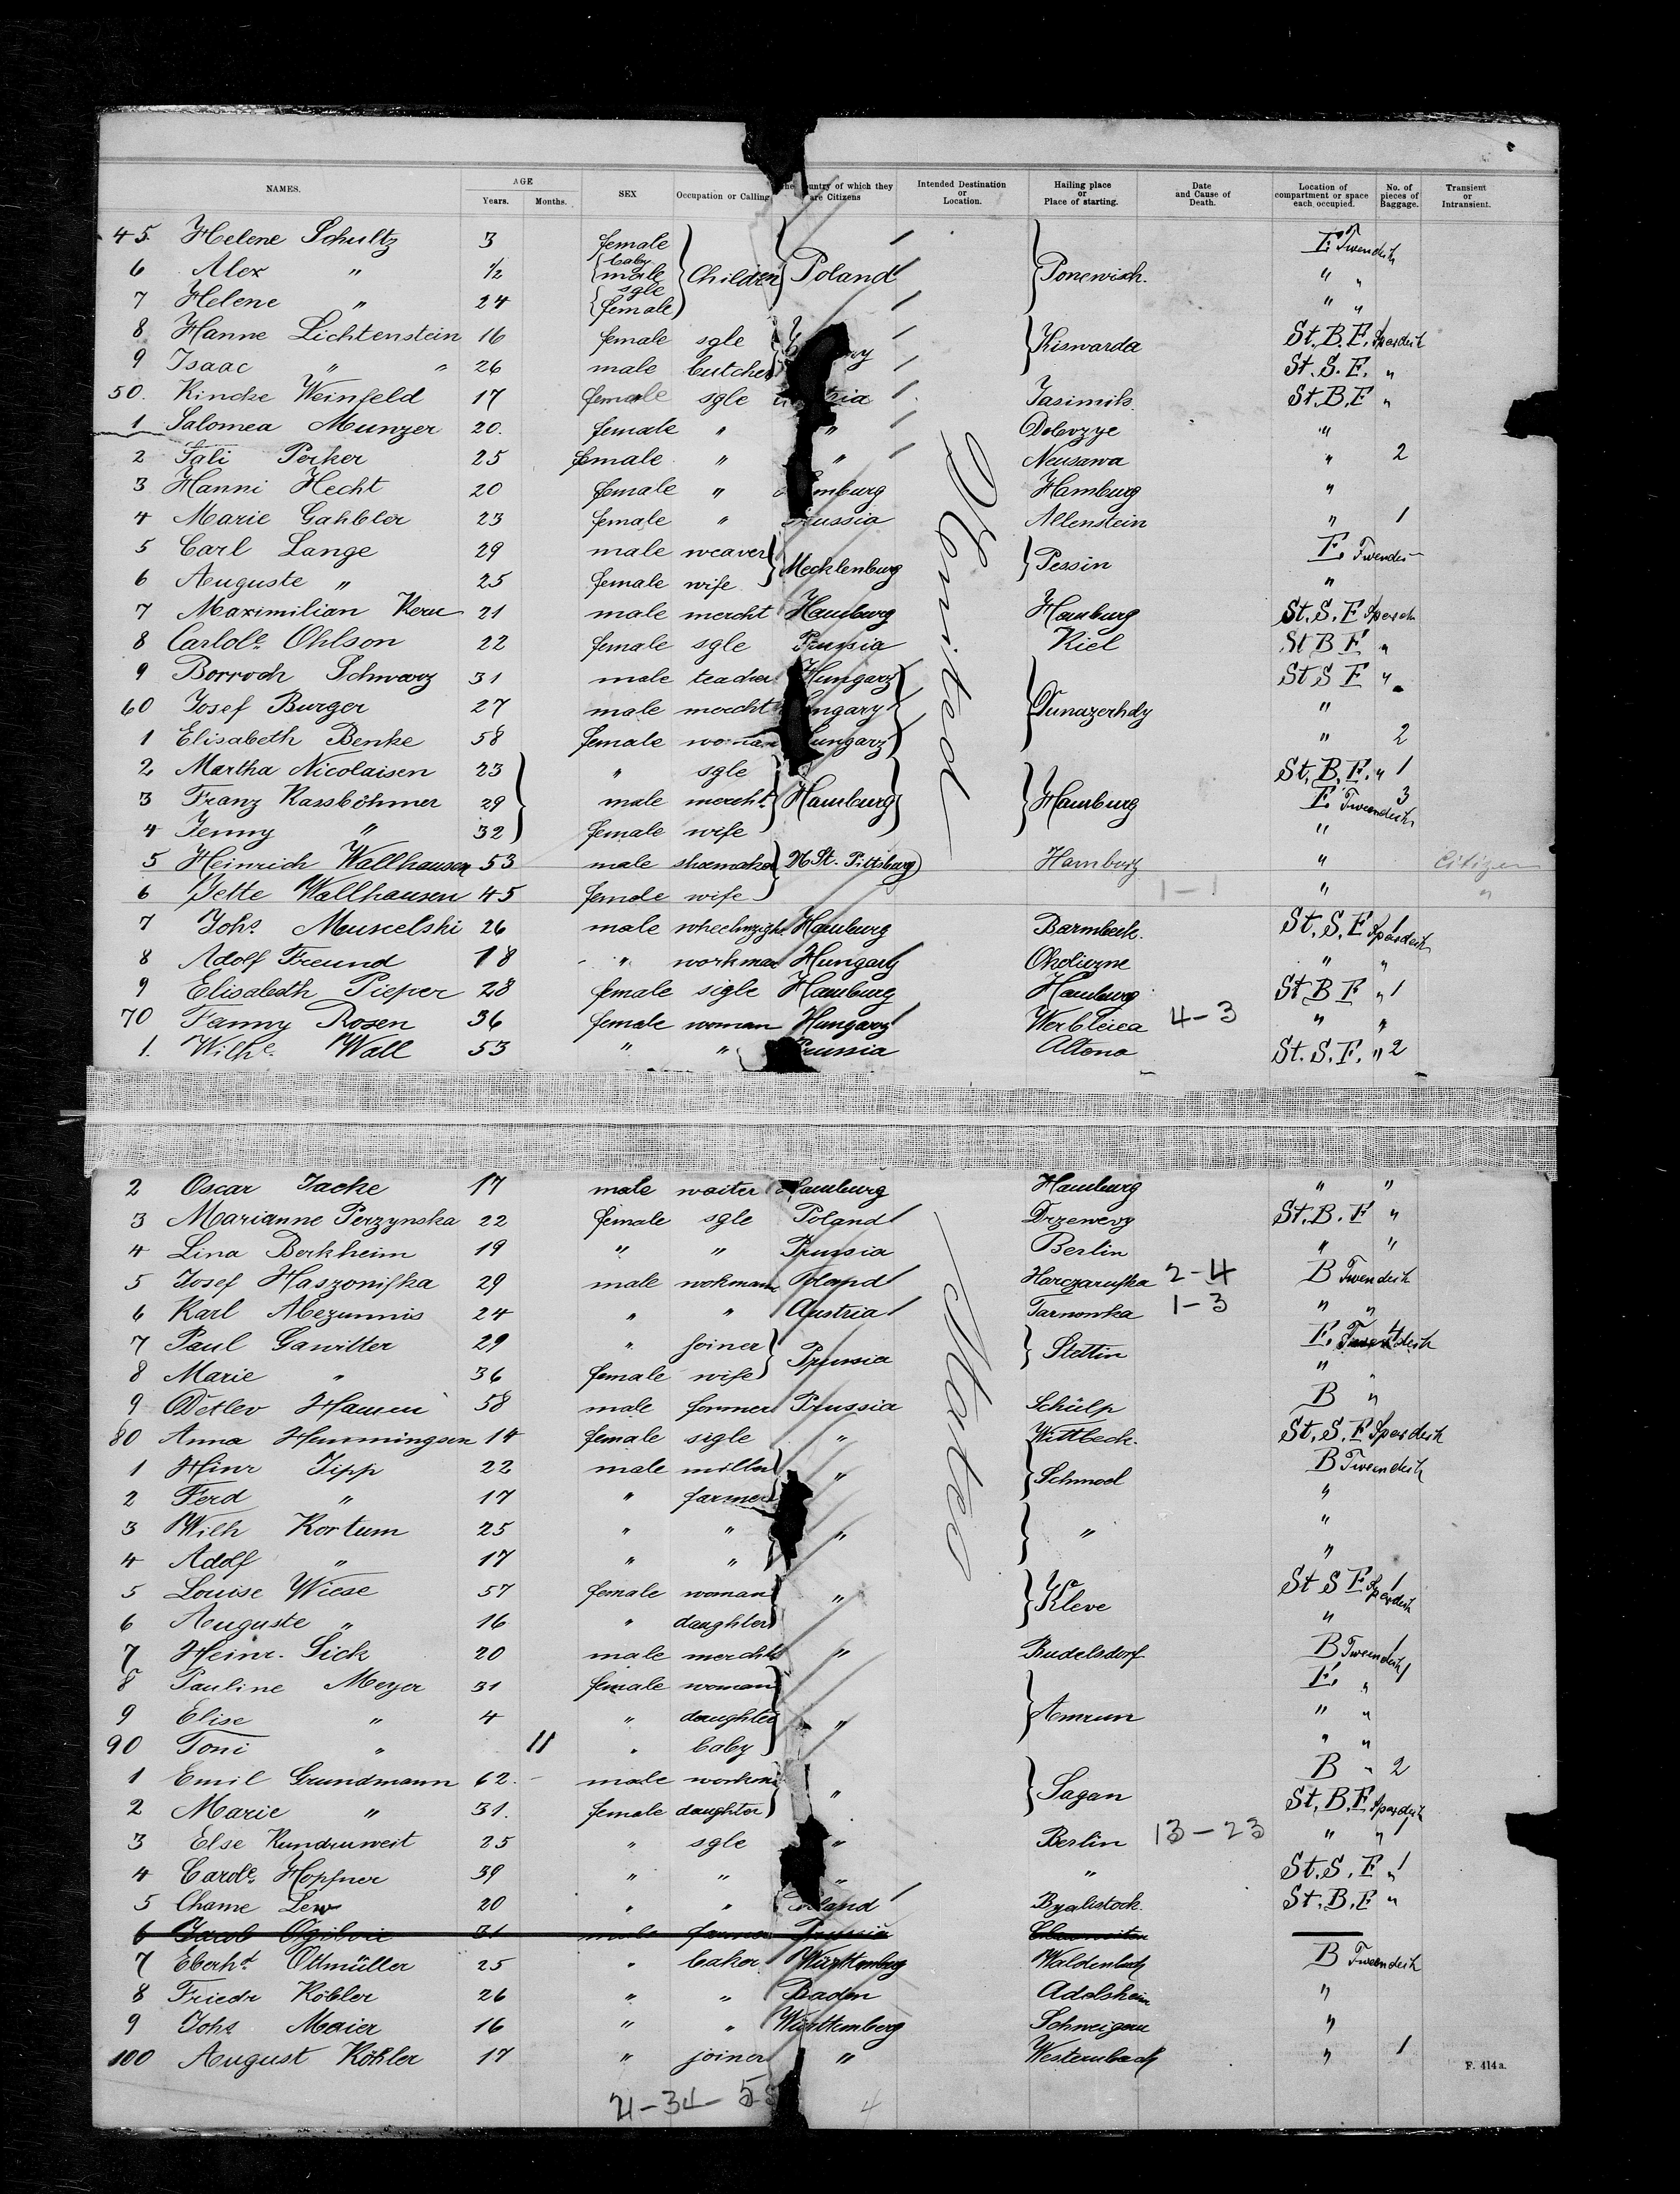 NAMES. AGE Years. Months. SEX Occupation or Calling The Country of which they are Citizens Intended Destination or Location. Hailing place or Place of starting. Date and Cause of Death. Location of compartment or space each occupied. No. of pieces of Baggage. Transient or Intransient.
45. Helene Schultz 3 female E Twendeck
6 Alex " 1/2 baby male Children Poland Ponewisch. " "
7 Helene " 24 sgle female " "
8 Hanne Lichtenstein 16 female sgle Kiswarda St. B. E. Spardeck
9 Isaac " " 26 male butcher St. S. E. "
50. Kincke Weinfeld 17 female sgle Jasimik St. B. E "
1 Salomea Munzer 20. female " " Dobrzye "
2 Tali Perker 25 female " " Neusawa " 2
3 Hanni Hecht 20 female " Hamburg Hamburg "
4 Marie Gahbler 23 female " Prussia Allenstein " 1
5 Carl Lange 29 male weaver Mecklenburg Pessin E. Twendeck
6 Auguste " 25 female wife "
7 Maximilian Kern 21 male mercht Hamburg Hamburg St. S. E Spardeck
8 Carolе Ohlson 22 female sgle Prussia Kiel St B E "
9 Borroch Schwarz 31 male teacher Hungary St S E "
60 Josef Burger 27 male mercht Hungary Dunazerhdy "
1 Elisabeth Benke 58 female woman Hungary " 2
2 Martha Nicolaisen 23 " sgle St. B. E. " 1
3 Franz Rassböhmer 29 male mercht. Hamburg Hamburg E Twendeck 3
4 Jenny " 32 female wife "
5 Heinrich Wallhausen 53 male shoemaker N St. Pittsburg Hamburg " Citizen
6 Jette Wallhausen 45 female wife 1-1 " "
7 Johs Muscelski 26 male wheelwright Hamburg Barmbeck. St. S. E Spardeck 1
8 Adolf Freund 18 " workman Hungary Okolirzne " "
9 Elisabeth Pieper 28 female sigle Hamburg Hamburg St B E " 1
70 Fanny Rosen 36 female woman Hungary Werbleica 4-3 " "
1. Wilhe. Wall 53 " " Prussia Altona St. S. E. " 2
2 Oscar Jacke 17 male waiter Hamburg Hamburg " "
3 Marianne Perzynska 22 female sgle Poland Drzewevy St. B. E "
4 Lina Berkheim 19 " " Prussia Berlin " "
5 Josef Haszonifka 29 male wokmann Poland Harczarufka 2-4 B Twendeck
6 Karl Abezunnis 24 " " Austria Tarnowka 1-3 " "
7 Paul Gawitter 29 " joiner Prussia Stettin E. Twendeck
8 Marie " 36 female wife " "
9 Detlev Hansen 58 male farmer Prussia Schülp B "
80 Anna Hemmingsen 14 female sigle " Wittbeck. St. S. E Spardeck
1 Hinr Jipp 22 male miller " Schmoel B Twendeck
2 Ferd " 17 " farmer "
3 Wilh Kortum 25 " " " " "
4 Adolf " 17 " " "
5 Louise Wiese 57 female woman " Kleve St S E Spardeck 1
6 Auguste " 16 " daughter "
7 Heinr. Sick 20 male mercht " Budelsdorf B Twendeck 1
8 Pauline Meyer 31 female woman E. " 1
9 Elise " 4 " daughter " Amrum " "
90 Toni " 11 " baby " "
1 Emil Grundmann 62. male workm " Sagan B " 2
2 Marie " 31. female daughter St. B. E Spardeck
3 Else Kundruweit 25 " sgle " Berlin 13-23 " "
4 Carole Hopfner 39 " " " " St. S. E " 1
5 Chame Lew 20 " " Poland Byalistock. St. B. E "
6 Jacob Ogilvie 31 male farmer Prussia
7 Eberhd Ottmüller 25 " baker Württemberg Waldenbuch B Twendeck
8 Friedr Köbler 26 " " Baden Adelsheim "
9 Johs Maier 16 " " Württemberg Schweigen "
100 August Köhler 17 " joiner " Westernbach " 1
F. 414a.
21-34-55 4
United
States